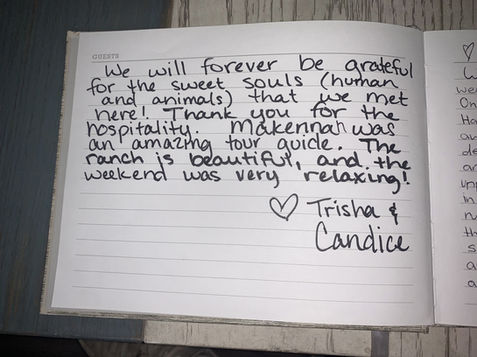 GUESTS
We will forever be grateful
for the sweet souls (human
and animals) that we met
here! Thank you for the
hospitality. Makennah was
an amazing tour guide. The
ranch is beautiful, and the
weekend was very relaxing!
♡ Trisha &
Candice